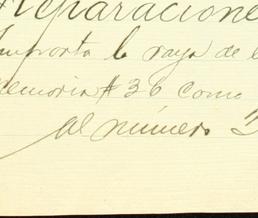 Reparacione
Importa la raya de e
emoria # 36 como
al número 3